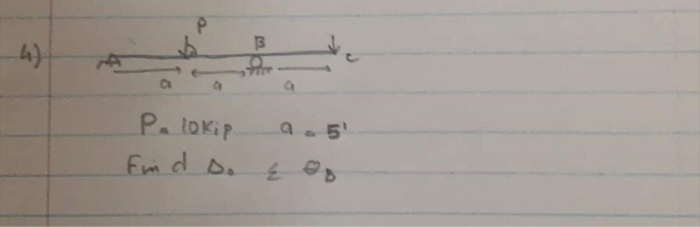 4)
P
B
A
D
c
a a a
P = 10Kip a = 5'
Find Δ. & θD